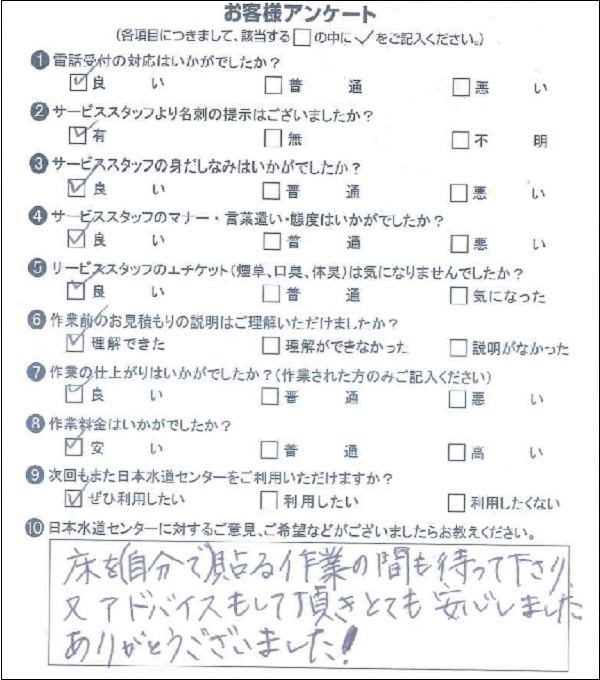 お客様アンケート
(各項目につきまして、該当する□の中に✓をご記入ください。)
❶ 電話受付の対応はいかがでしたか?
☑ 良い □ 普通 □ 悪い
❷ サービススタッフより名刺の提示はございましたか?
☑ 有 □ 無 □ 不明
❸ サービススタッフの身だしなみはいかがでしたか?
☑ 良い □ 普通 □ 悪い
❹ サービススタッフのマナー・言葉遣い・態度はいかがでしたか?
☑ 良い □ 普通 □ 悪い
❺ サービススタッフのエチケット(煙草、口臭、体臭)は気になりませんでしたか?
☑ 良い □ 普通 □ 気になった
❻ 作業前のお見積もりの説明はご理解いただけましたか?
☑ 理解できた □ 理解ができなかった □ 説明がなかった
❼ 作業の仕上がりはいかがでしたか?(作業された方のみご記入ください)
☑ 良い □ 普通 □ 悪い
❽ 作業料金はいかがでしたか?
☑ 安い □ 普通 □ 高い
❾ 次回もまた日本水道センターをご利用いただけますか?
☑ ぜひ利用したい □ 利用したい □ 利用したくない
❿ 日本水道センターに対するご意見、ご希望などがございましたらお教えください。
床を(自分で)貼る作業の間も待って下さり、
又アドバイスもして頂きとても安心しました
ありがとうございました!